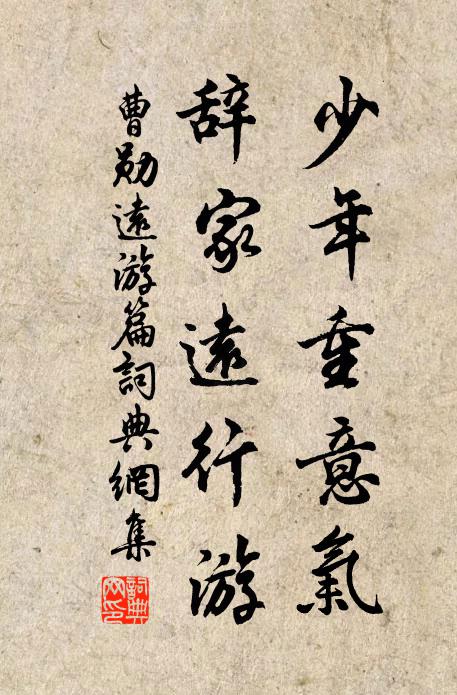 少年重意氣
辞家遠行游
曹勛遠游篇詞典網集
詞典網印